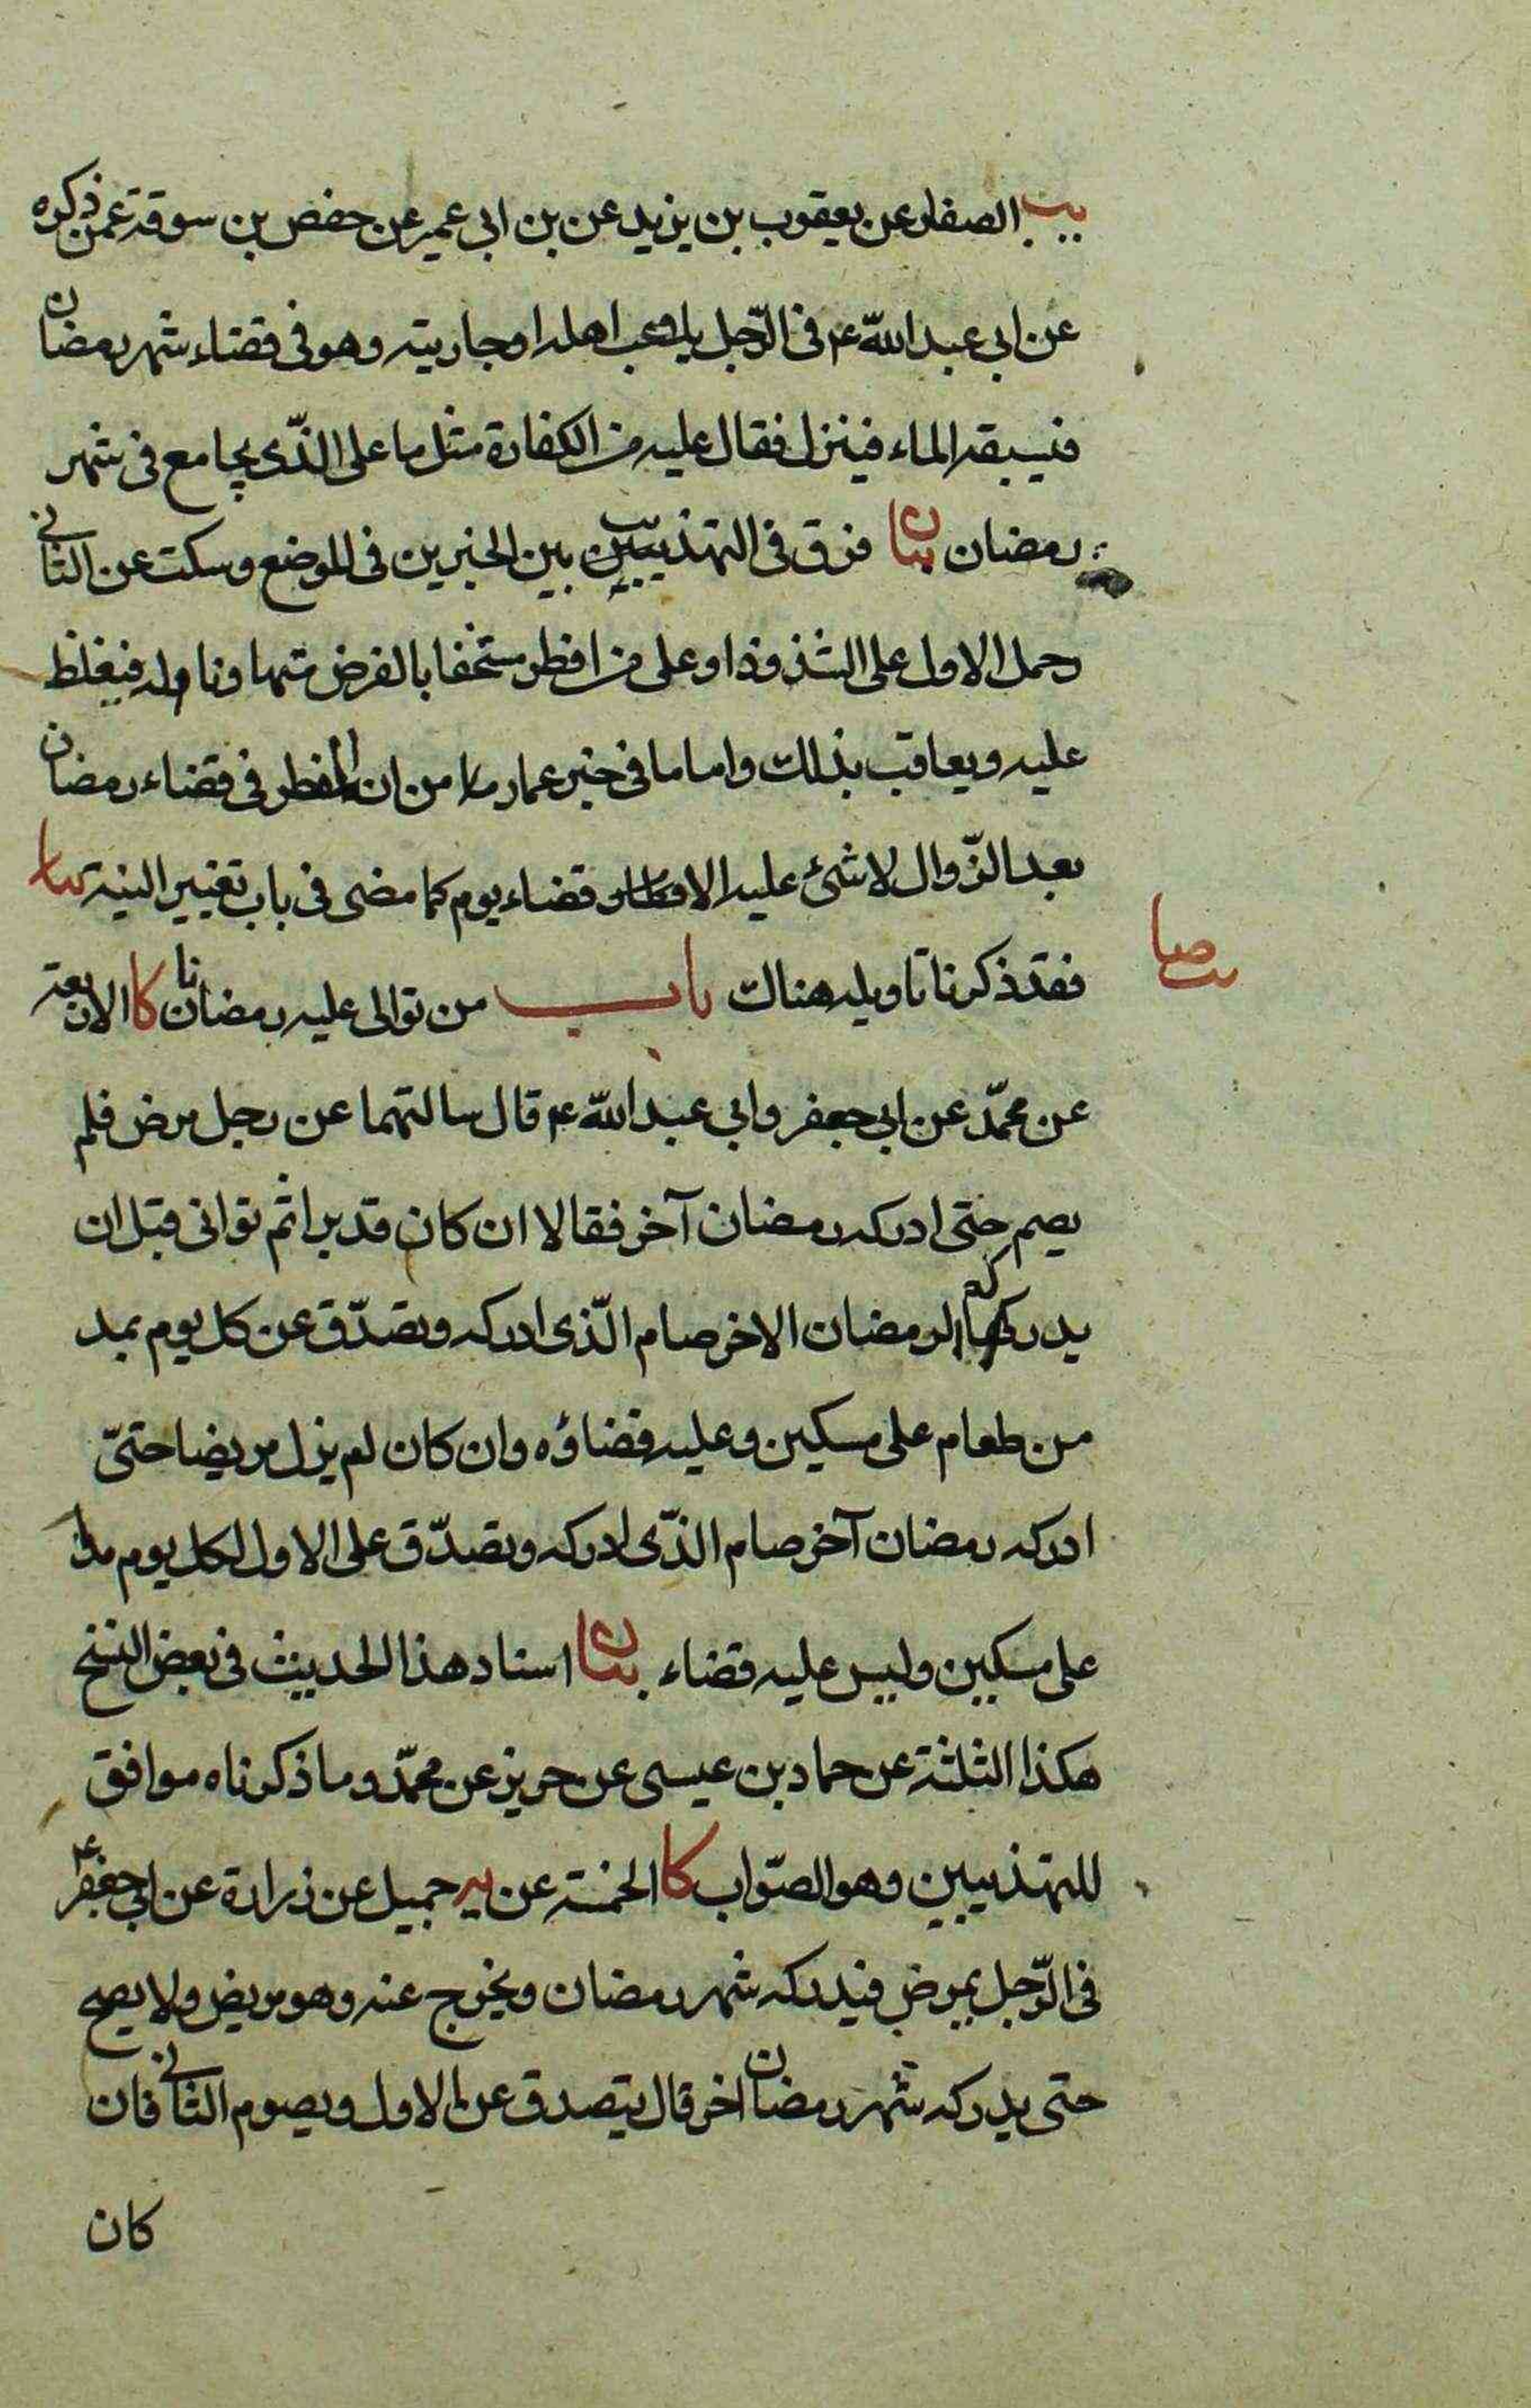 يب الصفار عن يعقوب بن يزيد عن بن ابى عمير عن حفص بن سوقة عمن ذكره
عن ابى عبد الله ع فى الرّجل يلاعب اهله او جاريته وهو فى قضاء شهر رمضان
فيسبقه الماء فينزل فقال عليه من الكفارة مثل ما على الذّى يجامع فى شهر
رمضان بيان فرق فى التهذيبين بين الخبرين فى الموضع وسكت عن الثانى
وحمل الاول على الشذوذ او على من افطر مستخفا بالفرض متهاونا به فيغلظ
عليه ويعاقب بذلك واما ما فى خبر عمار من ان المفطر فى قضاء رمضان
بعد الزّوال لا شئ عليه الا قضاء يوم كما مضى فى باب تغيير النية
فقد ذكرنا تاويله هناك باب من توالى عليه رمضانان كا الاربعة
عن محمّد عن ابى جعفر وابى عبد الله ع قال سالتهما عن رجل مرض فلم
يصم حتى ادركه رمضان آخر فقالا ان كان قد برا ثم توانى قبل ان
يدركه الرمضان الاخر صام الّذى ادركه وتصدّق عن كل يوم بمد
من طعام على مسكين وعليه قضاؤه وان كان لم يزل مريضا حتىّ
ادركه رمضان آخر صام الذّى ادركه وتصدّق على الاول لكل يوم مدا
على مسكين وليس عليه قضاء بيان اسناد هذا الحديث فى بعض النسخ
هكذا الثلثة عن حماد بن عيسى عن حريز عن محمّد وما ذكرناه موافق
للتهذيبين وهو الصّواب كا الخمسة عن يه جميل عن زرارة عن ابى جعفر ع
فى الرّجل يمرض فيدركه شهر رمضان ويخرج عنه وهو مريض ولا يصح
حتى يدركه شهر رمضان اخر قال يتصدق عن الاول ويصوم الثانى فان
كان